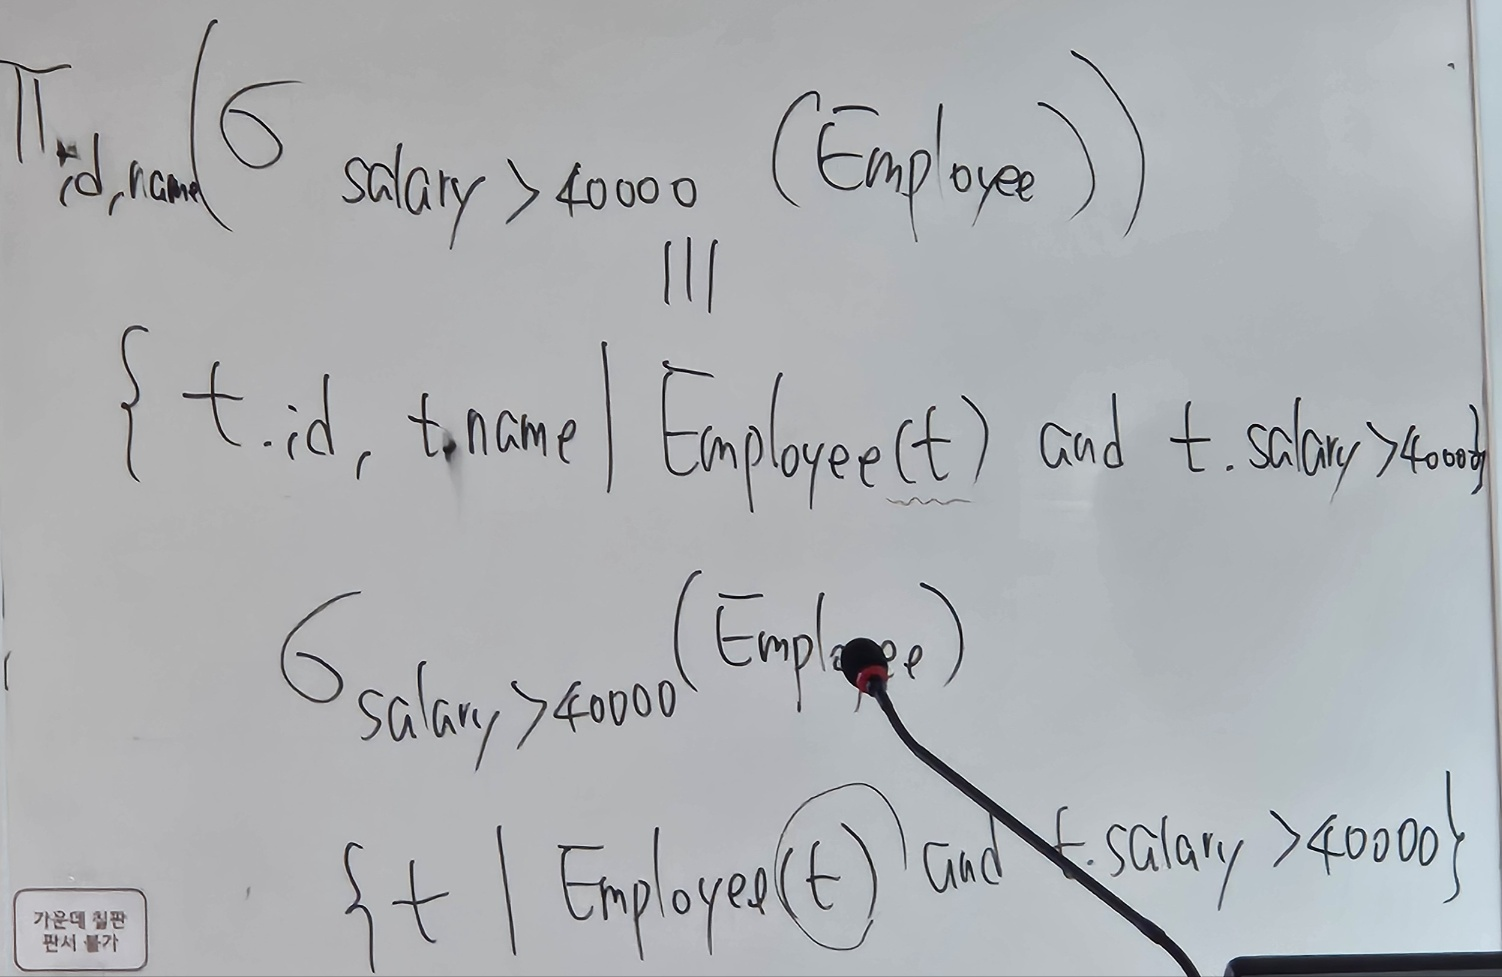 π id, name (σ salary > 40000 (Employee))
|||
{ t.id, t.name | Employee(t) and t.salary > 40000}
σ salary > 40000 (Employee)
{ t | Employee(t) and t.salary > 40000}
가운데 칠판
판서 불가